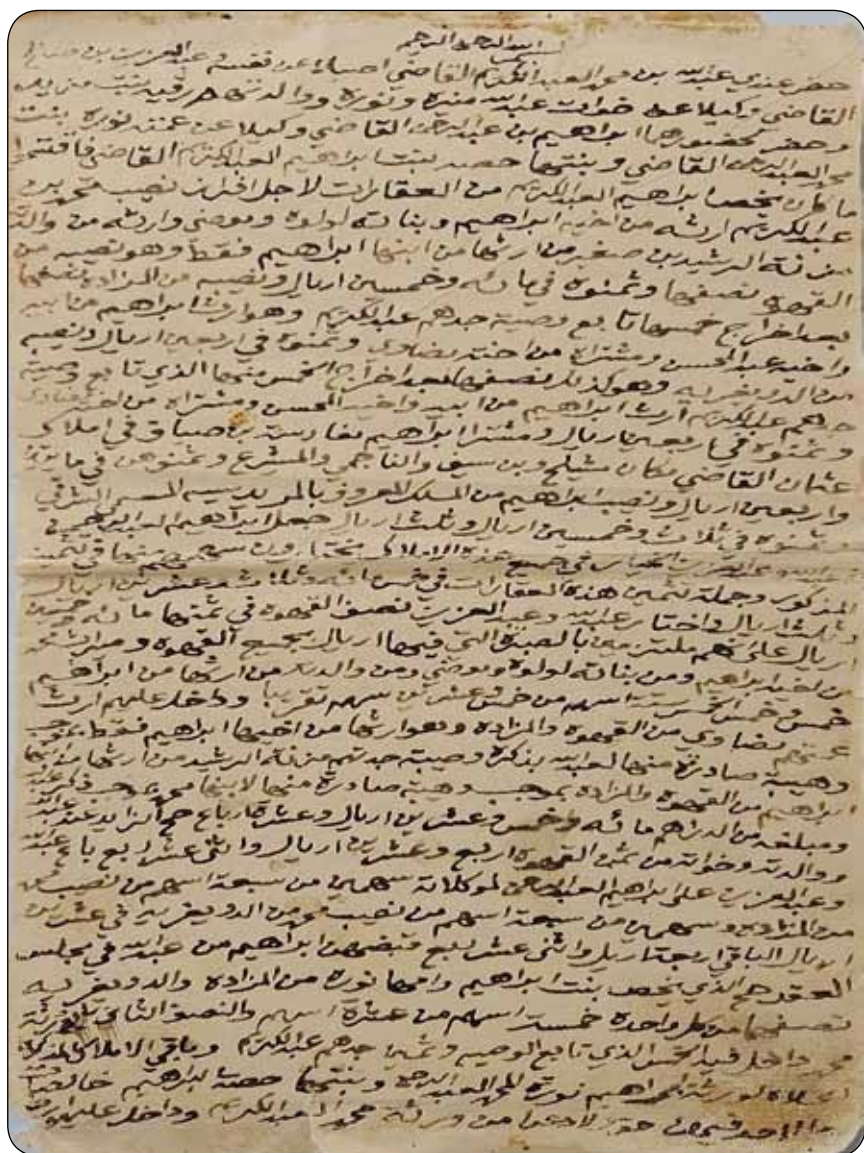 بسم الله الرحمن الرحيم
حضر عندي عبدالله بن محمد العبدالكريم القاضي اصالة عن نفسه وعبدالعزيز بن صالح
القاضي وكيلا عن خوات عبدالله منيره ونوره ووالدتهم رقيه بنت
وحضر لحضورهما ابراهيم بن عبدالرحمن القاضي وكيلا عن عمته نوره بنت
محمد العبدالرحمن القاضي وبنتها حصه بنت ابراهيم العبدالكريم القاضي فاقتسموا
ما كان يخص ابراهيم العبدالكريم من العقارات لاجل افراز نصيب محمد بن
عبدالكريم ارثه من اخيه ابراهيم وبناته لولوه وموضي وارثه من والدته
مزنة الرشيد بن صغير من ارثها من ابنها ابراهيم فقط وهو نصيبه من
القهوه نصفها وثمنوه في مائه وخمسين اريال ونصيبه من المزاده نصفها
بعد اخراج خمسها تابع وصية جدهم عبدالكريم وهو ارث ابراهيم من ابيه
واخيه عبدالمحسن ومشتراه من اخته مضاوي وثمنوه في اربعين اريال ونصيبه
من الدويغريه وهو كذلك نصفها بعد اخراج الخمس منها الذي تابع وصية
جدهم عبدالكريم ارث ابراهيم من ابيه واخيه المحسن ومشتراه من اخته مضاوي
وثمنوه في اربعين اريال ومشترا ابراهيم بمغارسة بن صباق في املاك
عثمان القاضي مكان مشيلح وبن سيف والناجمي والمشرع وثمنوهن في مايه
واربعين اريال ونصيب ابراهيم من الملك المعروف بالمريديسيه المسمى الشرقي
وثمنوه في ثلاث وخمسين اريال وثلث اريال جعل ابراهيم العبدالرحمن
عبدالله وعبدالعزيز الخيار في جميع هذه الاملاك يختارون سهم منها في التثمين
المذكور وجملة تثمين هذه العقارات في خمس مائه عشرين اريال
وثلث اريال واختار عبدالله وعبدالعزيز نصف القهوه في ثمنها مائه وخمسين
اريال على انهم ملتزمين بالصبره التي فيها اريال بجميع القهوه وميراثهم
من اخيه ابراهيم ومن بناته لولوه وموضي ومن والدته من ارثها من ابراهيم
خمس وخمس الخمس ستة اسهم من خمس وعشرين سهم تقريبا وداخل عليهم ارث
عمتهم مضاوي من القهوه والمزاده وهو ارثها من اخيها ابراهيم فقط بموجب
وهيبة صادرة منها لعبدالله بذكره وصيبة جدتهم مزنة الرشيد من ارثها من ابنها
ابراهيم من القهوه والمزاده بموجب وهيبه صادرة منها لابنها محمد بموجب ذكر عبدالله
ومبلغه من الدراهم مائه وخمس وعشرين اريال وعشرة ارباع حج الزايد عند عبدالله
ووالدته وخواته من ثمن القهوه اربع وعشرين اريال واثني عشر ربع باع عبدالله
وعبدالعزيز على ابراهيم العبدالرحمن لموكلاته سهمين من سبعة اسهم من نصيب
من المزاده وسهمين من سبعة اسهم من نصيب محمد من الدويغريه في عشرين
اريال الباقي اربعة اريل واثني عشر ربع قبضهن ابراهيم من عبدالله في مجلس
العقد حج الذي يخص بنت ابراهيم وامها نوره من المزاده والدويغريه
نصفها من كل واحده خمسة اسهم من عشرة اسهم والنصف الثاني لورثة
محمد داخل فيه الخمس الذي تابع الوصيه وثمين جدهم عبدالكريم وباقي الاملاك المذكوره
لورثة ابراهيم نوره المحمد العبدالرحمن وبنتها حصة ابراهيم خالصات
فيهن حق لا دعوا من ورثة محمد العبدالكريم وداخل عليهم